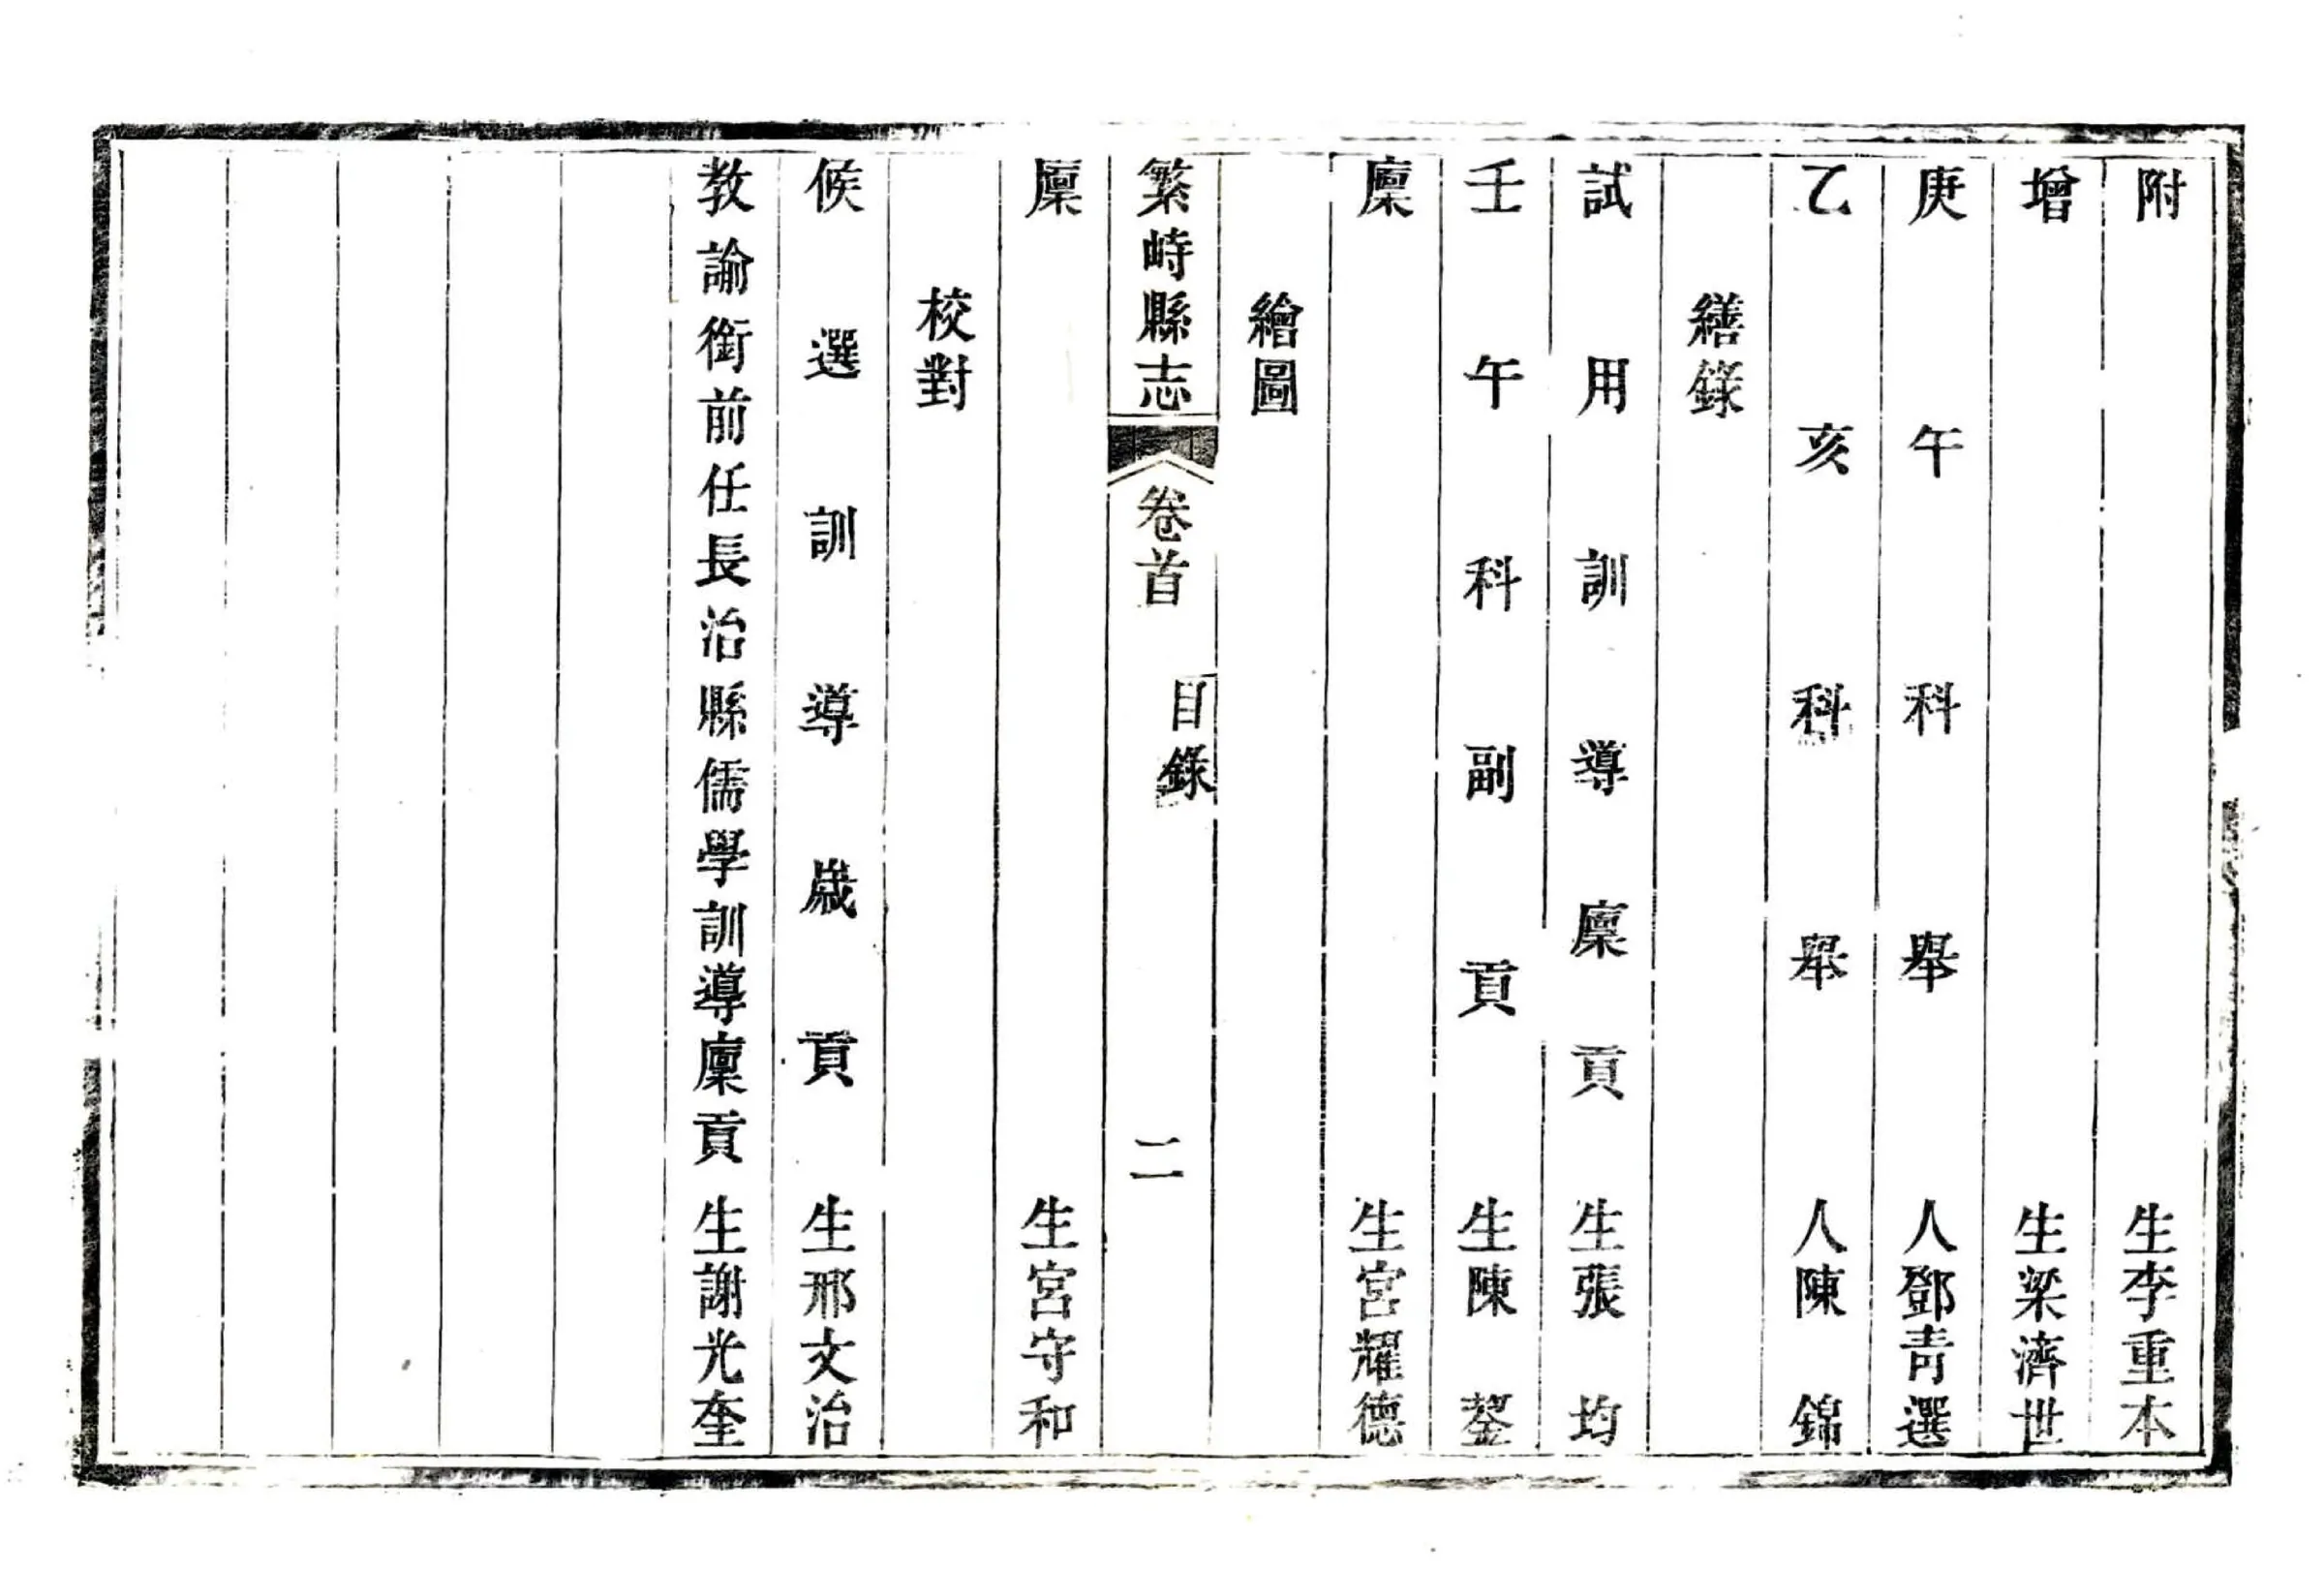 附生李重本
增生梁濟世
庚午科舉人鄧青選
乙亥科舉人陳錦
繕錄
試用訓導廩貢生張均
壬午科副貢生陳蓥
廩生宮耀德
繪圖
繁峙縣志 卷首 目錄 二
廩生宮守和
校對
候選訓導歲貢生邢文治
教諭銜前任長治縣儒學訓導廩貢生謝光奎